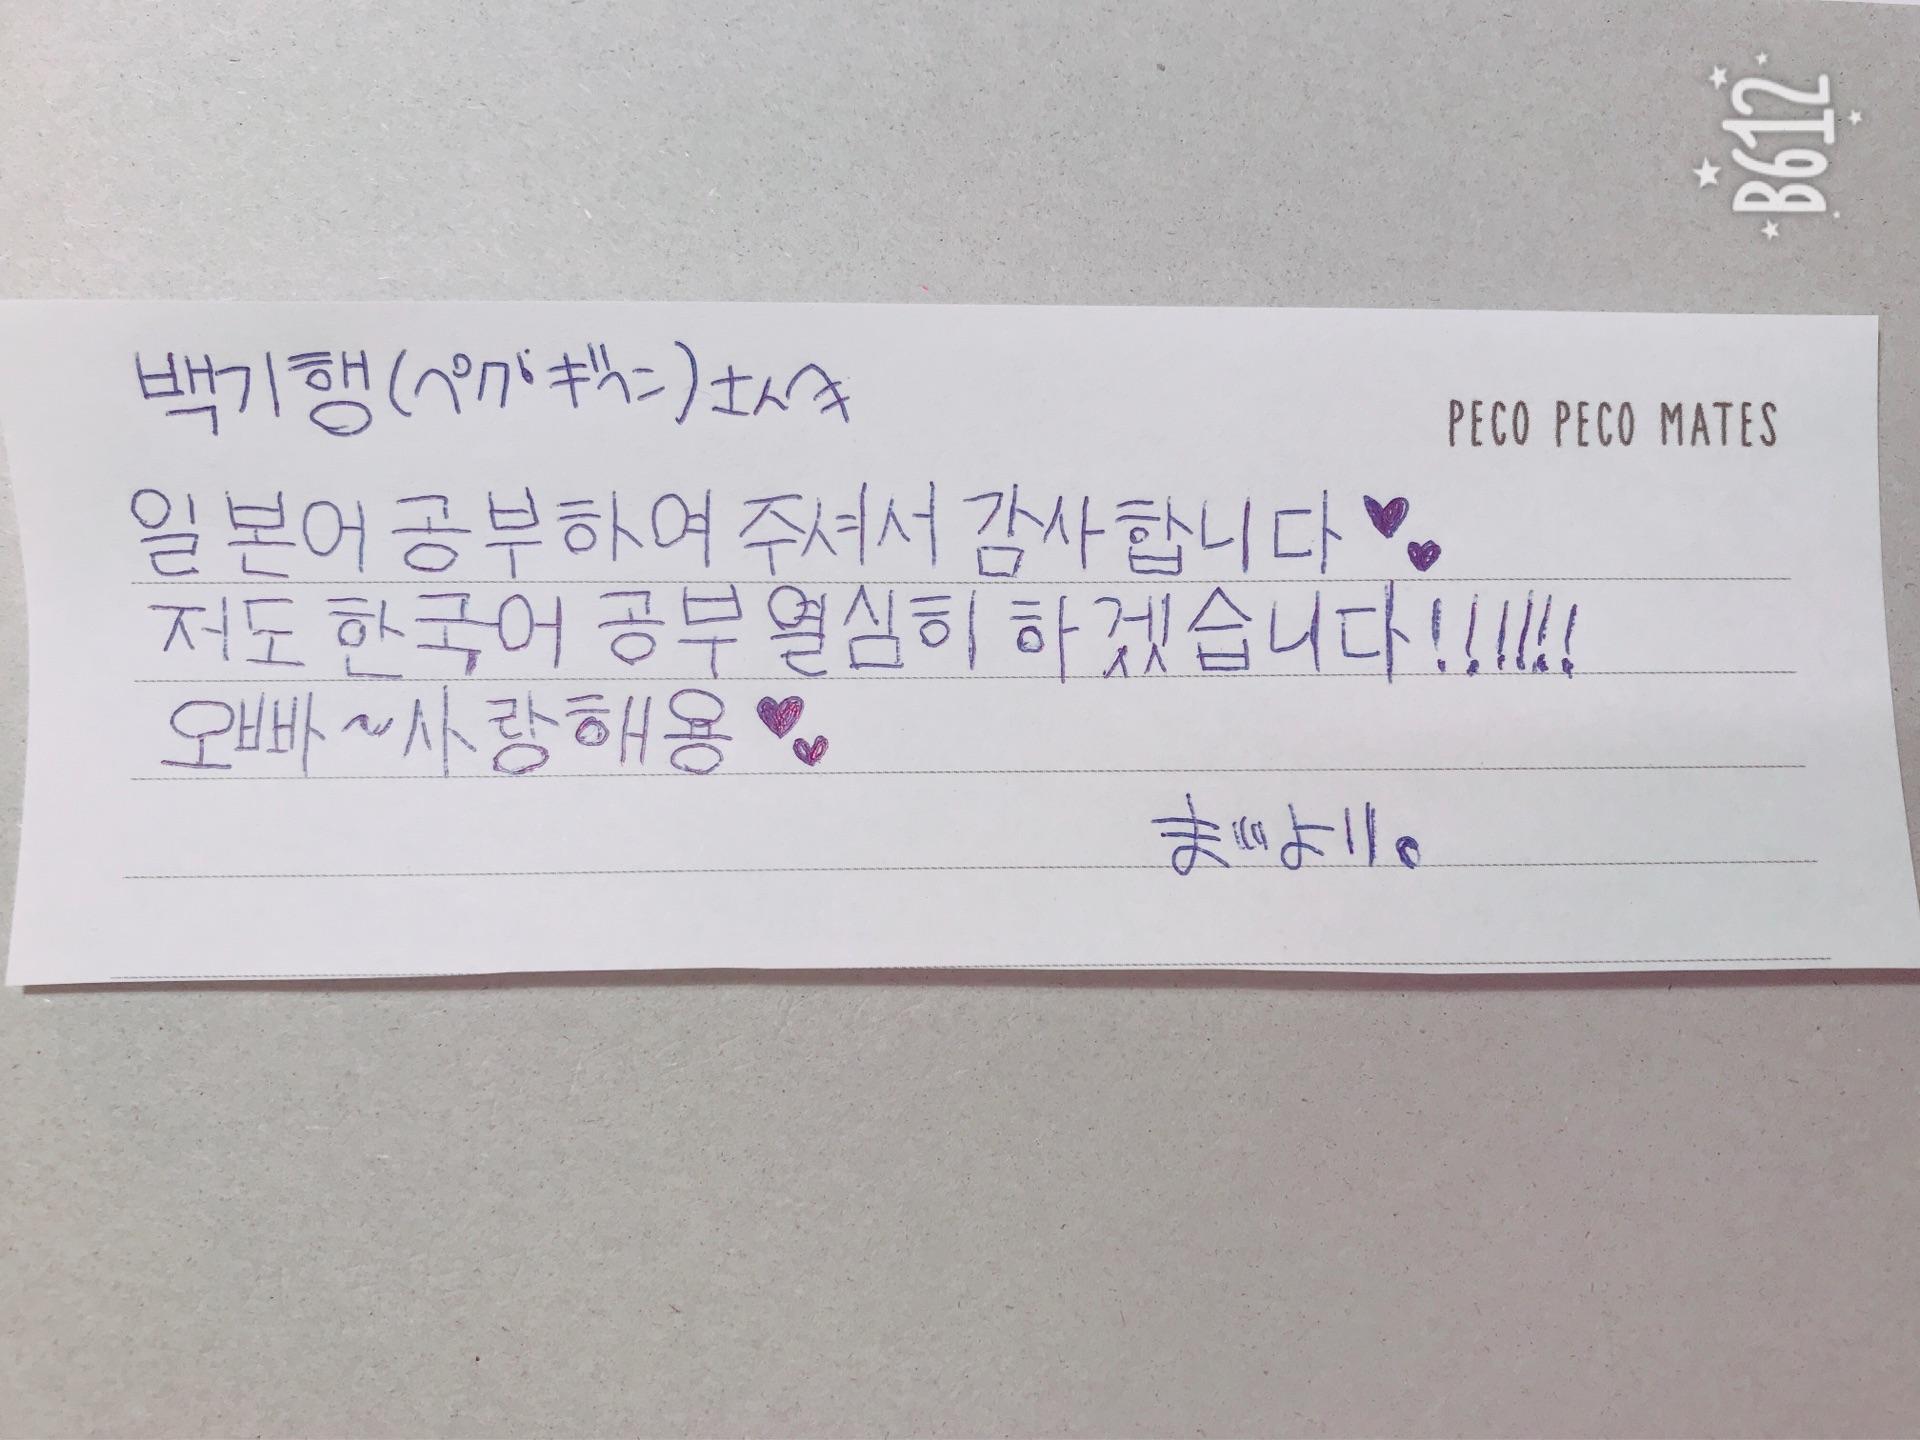 B612
백기행(ペク ギヘン)さんへ
PECO PECO MATES
일본어 공부하여 주셔서 감사합니다♥♥
저도 한국어 공부 열심히 하겠습니다!!!!!!
오빠~사랑해용♥♥
まぃより。